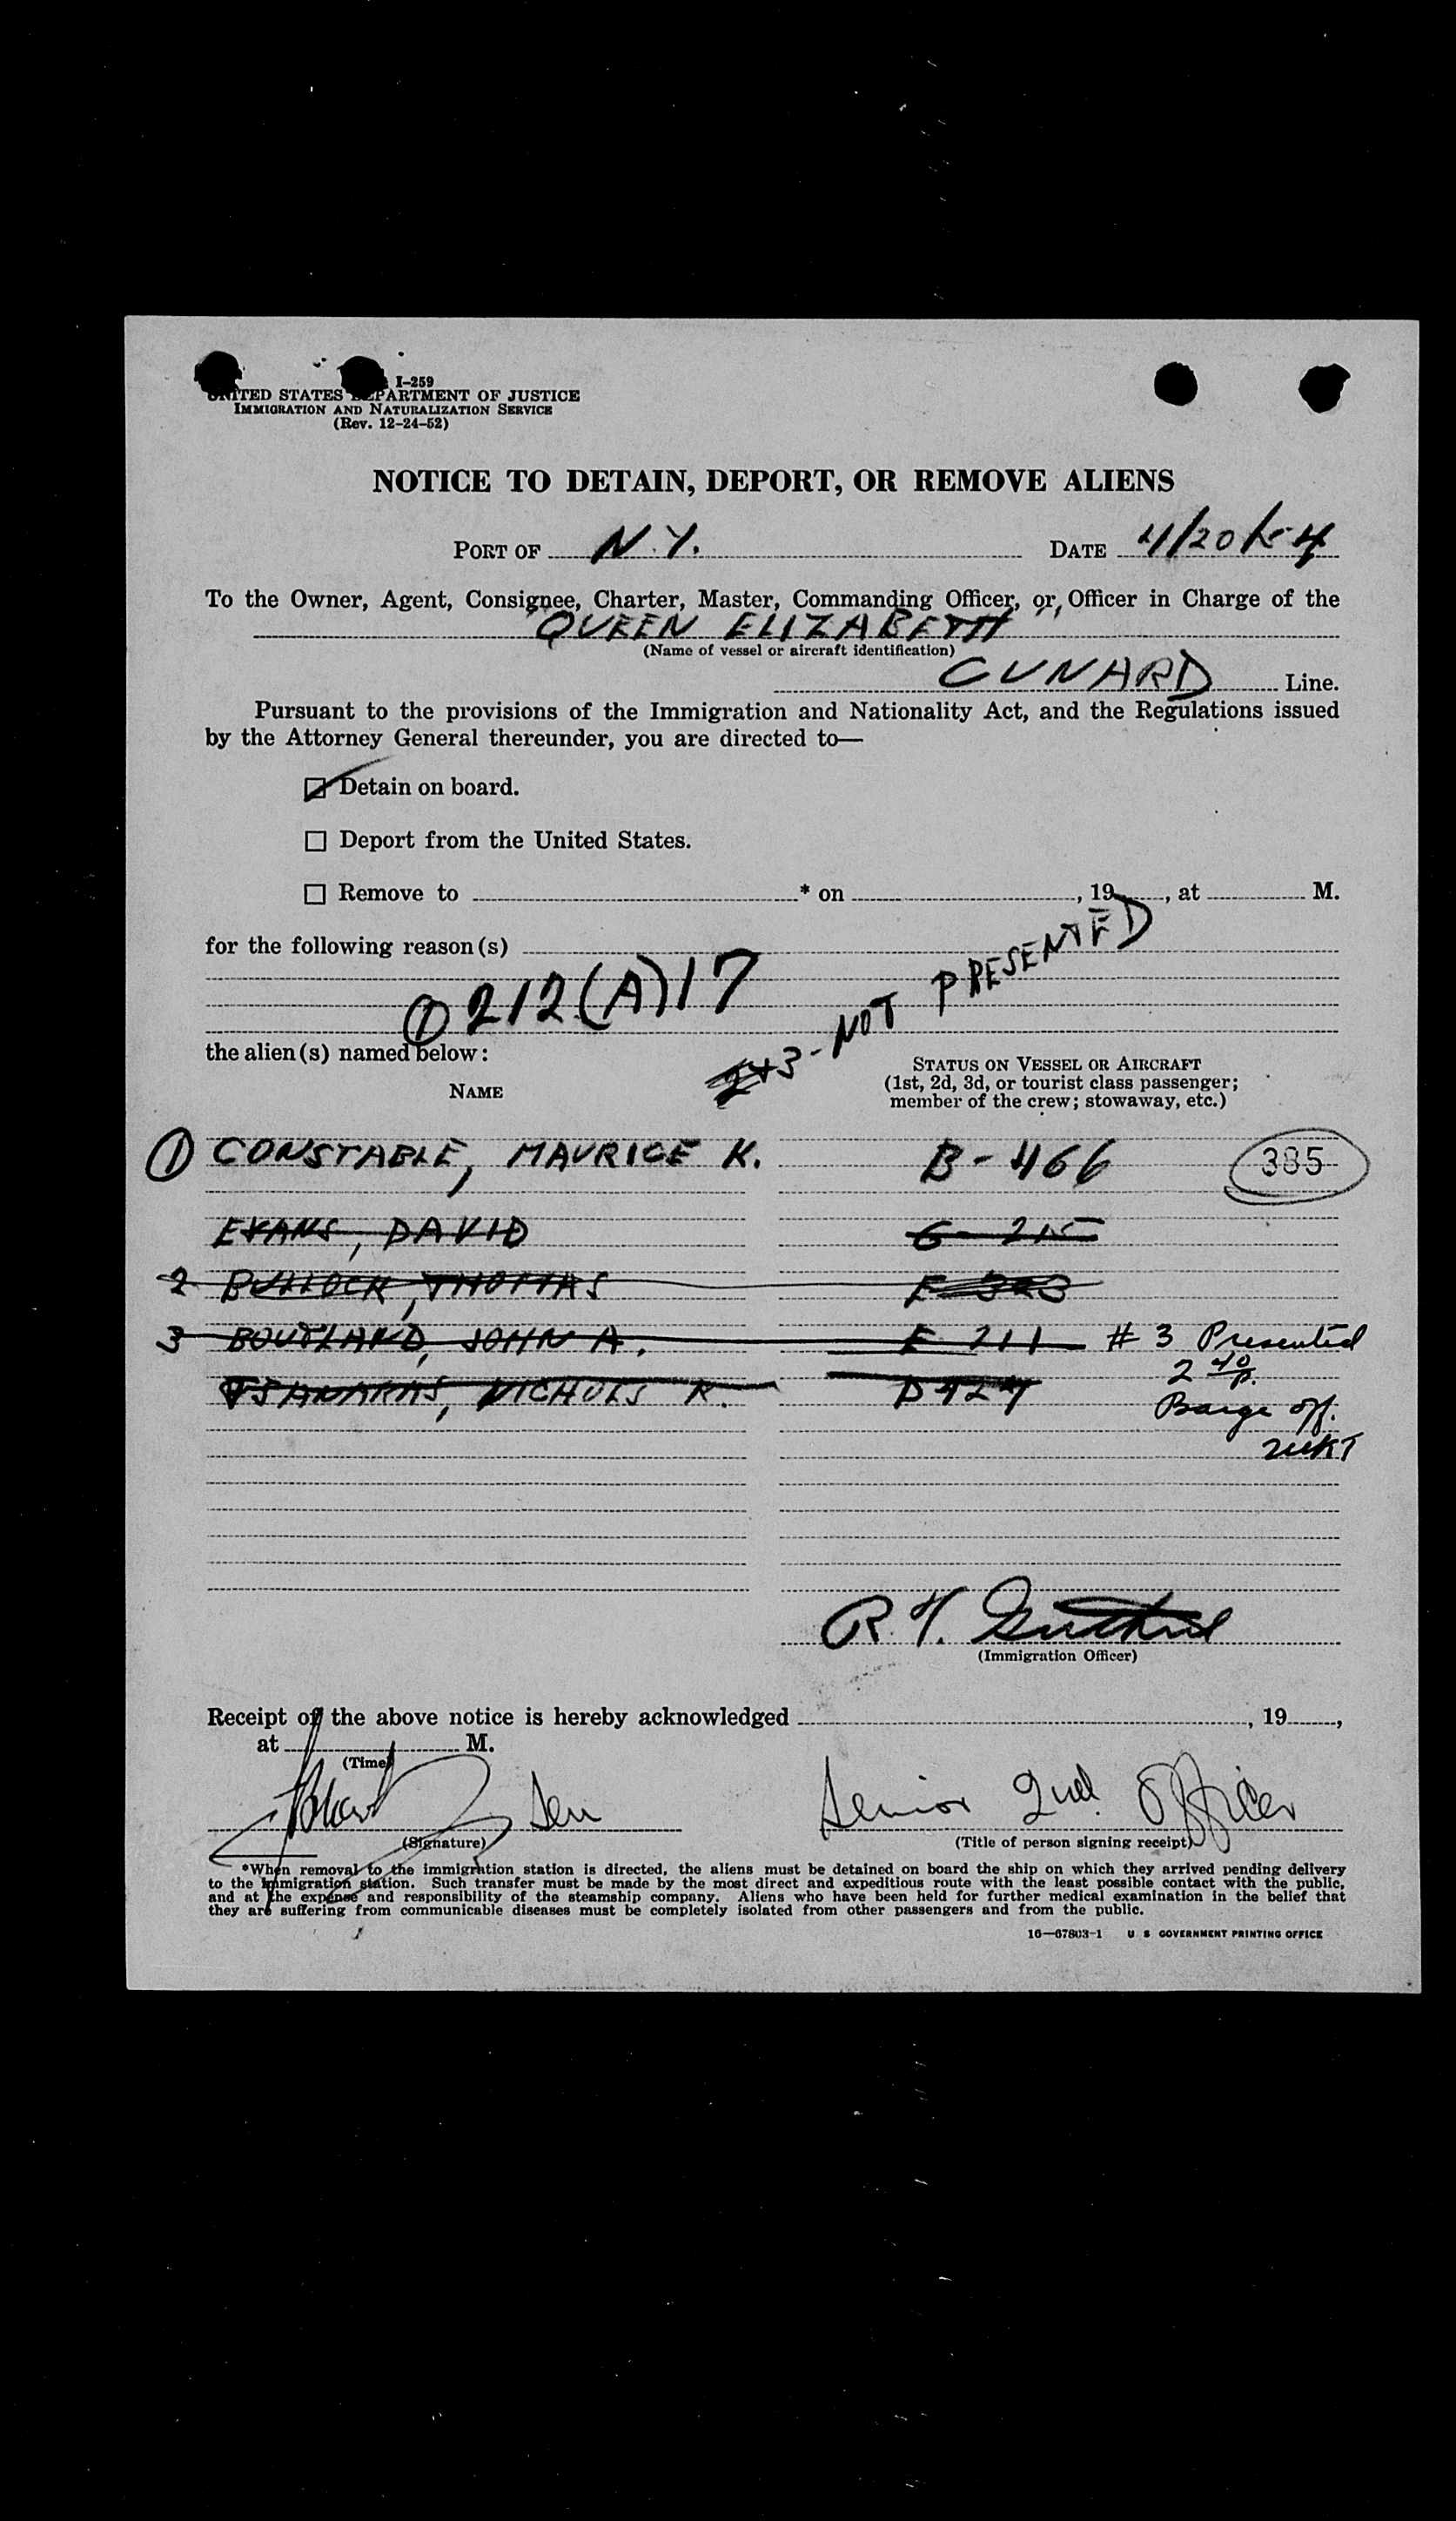 I-259
UNITED STATES DEPARTMENT OF JUSTICE
IMMIGRATION AND NATURALIZATION SERVICE
(Rev. 12-24-52)
NOTICE TO DETAIN, DEPORT, OR REMOVE ALIENS
PORT OF N.Y. DATE 4/20/54
To the Owner, Agent, Consignee, Charter, Master, Commanding Officer, or, Officer in Charge of the
"QUEEN ELIZABETH"
(Name of vessel or aircraft identification)
CUNARD Line.
Pursuant to the provisions of the Immigration and Nationality Act, and the Regulations issued
by the Attorney General thereunder, you are directed to—
Detain on board.
Deport from the United States.
Remove to * on , 19 , at M.
for the following reason(s)
① 212(A)17
2+3 - NOT PRESENTED
the alien(s) named below:
NAME
STATUS ON VESSEL OR AIRCRAFT
(1st, 2d, 3d, or tourist class passenger;
member of the crew; stowaway, etc.)
① CONSTABLE, MAURICE K. B-466 385
EVANS, DAVID 215
2 BULLOCK, THOMAS
3 BOUTLAND, JOHN A. 211 # 3 Presented
2 40 p.
NICHOLS K. D424
Barge off.
R. Guthrie
(Immigration Officer)
Receipt of the above notice is hereby acknowledged , 19 ,
at M.
(Time)
Senior 2nd. Officer
(Signature)
(Title of person signing receipt)
*When removal to the immigration station is directed, the aliens must be detained on board the ship on which they arrived pending delivery
to the immigration station. Such transfer must be made by the most direct and expeditious route with the least possible contact with the public,
and at the expense and responsibility of the steamship company. Aliens who have been held for further medical examination in the belief that
they are suffering from communicable diseases must be completely isolated from other passengers and from the public.
16—67803-1 U S GOVERNMENT PRINTING OFFICE